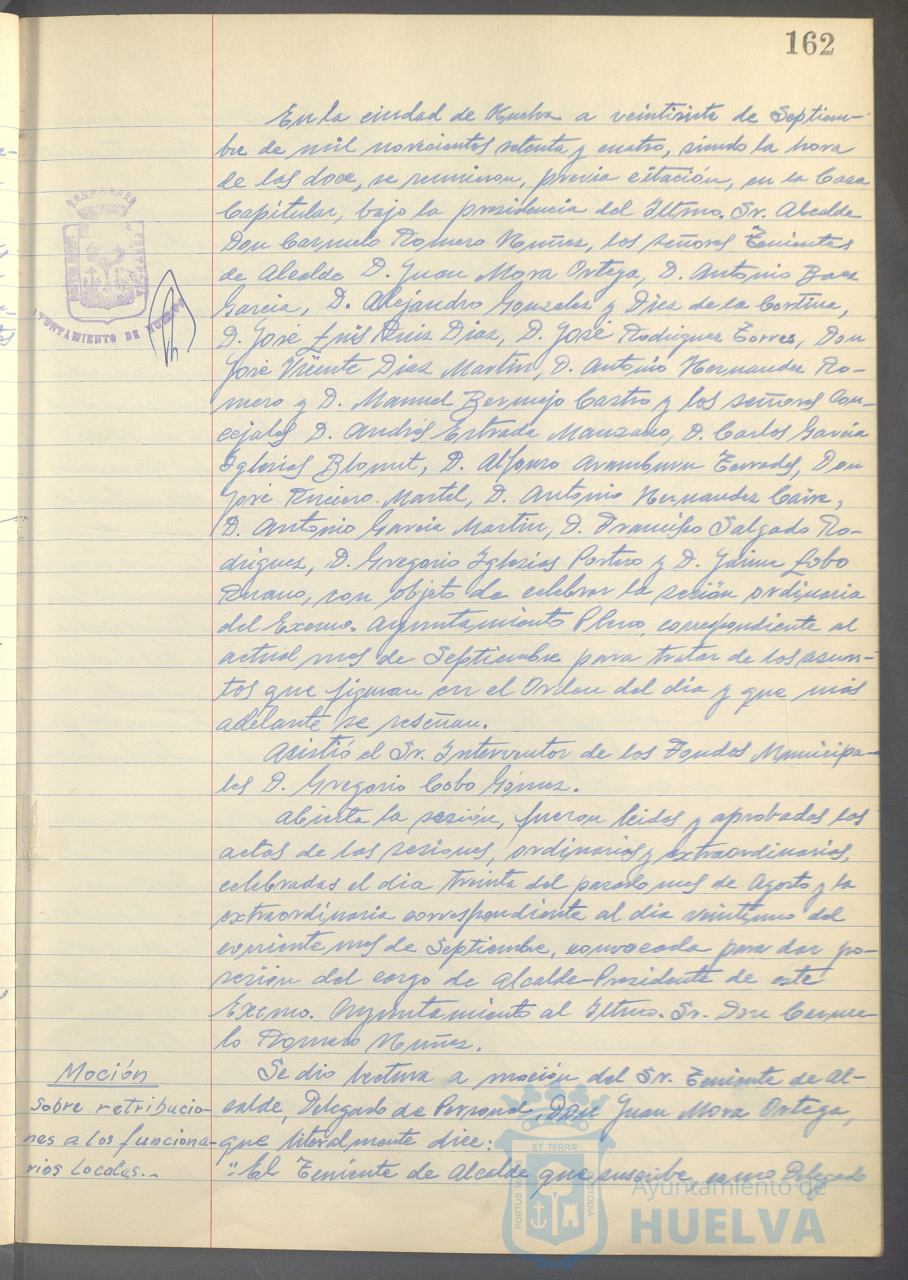 162
En la ciudad de Huelva a veintisiete de Septiem-
bre de mil novecientos setenta y cuatro, siendo la hora
de las doce, se reunieron, previa citación, en la Casa
Capitular, bajo la presidencia del Iltmo. Sr. Alcalde
Don Carmelo Romero Nuñez, los señores Tenientes
de Alcalde D. Juan Mora Ortega, D. Antonio Baez
Garcia, D. Alejandro Gonzalez y Diez de la Cortina,
D. José Luis Ruiz Diaz, D. José Rodriguez Torres, Don
José Vicente Diaz Martin, D. Antonio Hernandez Ro-
mero y D. Manuel Bermejo Castro y los señores Con-
cejales D. Andrés Estrada Manzano, D. Carlos Garcia
Iglesias Blomut, D. Alfonso Aramburu Terrades, Don
José Martel, D. Antonio Hernandez
D. Antonio Garcia Martin, D. Francisco Salgado Ro-
driguez, D. Gregorio Iglesias Portero y D. Jaime Lobo
con objeto de celebrar la sesión ordinaria
del Excmo. Ayuntamiento Pleno, correspondiente al
actual mes de Septiembre para tratar de los asun-
tos que figuran en el Orden del dia y que más
adelante se reseñan.
Asistió el Sr. Interventor de los Fondos Municipa-
les D. Gregorio Cobo Gómez.
Abierta la sesión, fueron leidos y aprobadas las
actas de las sesiones, ordinarias y extraordinarias,
celebradas el dia treinta del pasado mes de Agosto y la
extraordinaria correspondiente al dia veintiuno del
corriente mes de Septiembre, convocada para dar po-
sesion del cargo de Alcalde-Presidente de este
Excmo. Ayuntamiento al Iltmo. Sr. Don Carme-
lo Romero Nuñez.
Moción
Sobre retribucio-
nes a los funciona-
rios locales.-
Se dio lectura a moción del Sr. Teniente de Al-
calde, Delegado de Personal, Don Juan Mora Ortega,
que literalmente dice:
"El Teniente de Alcalde que suscribe, como Delegado
AYUNTAMIENTO DE HUELVA
ET TERRÆ
PORTUS MARIS
CUSTODIA
Ayuntamiento de
HUELVA